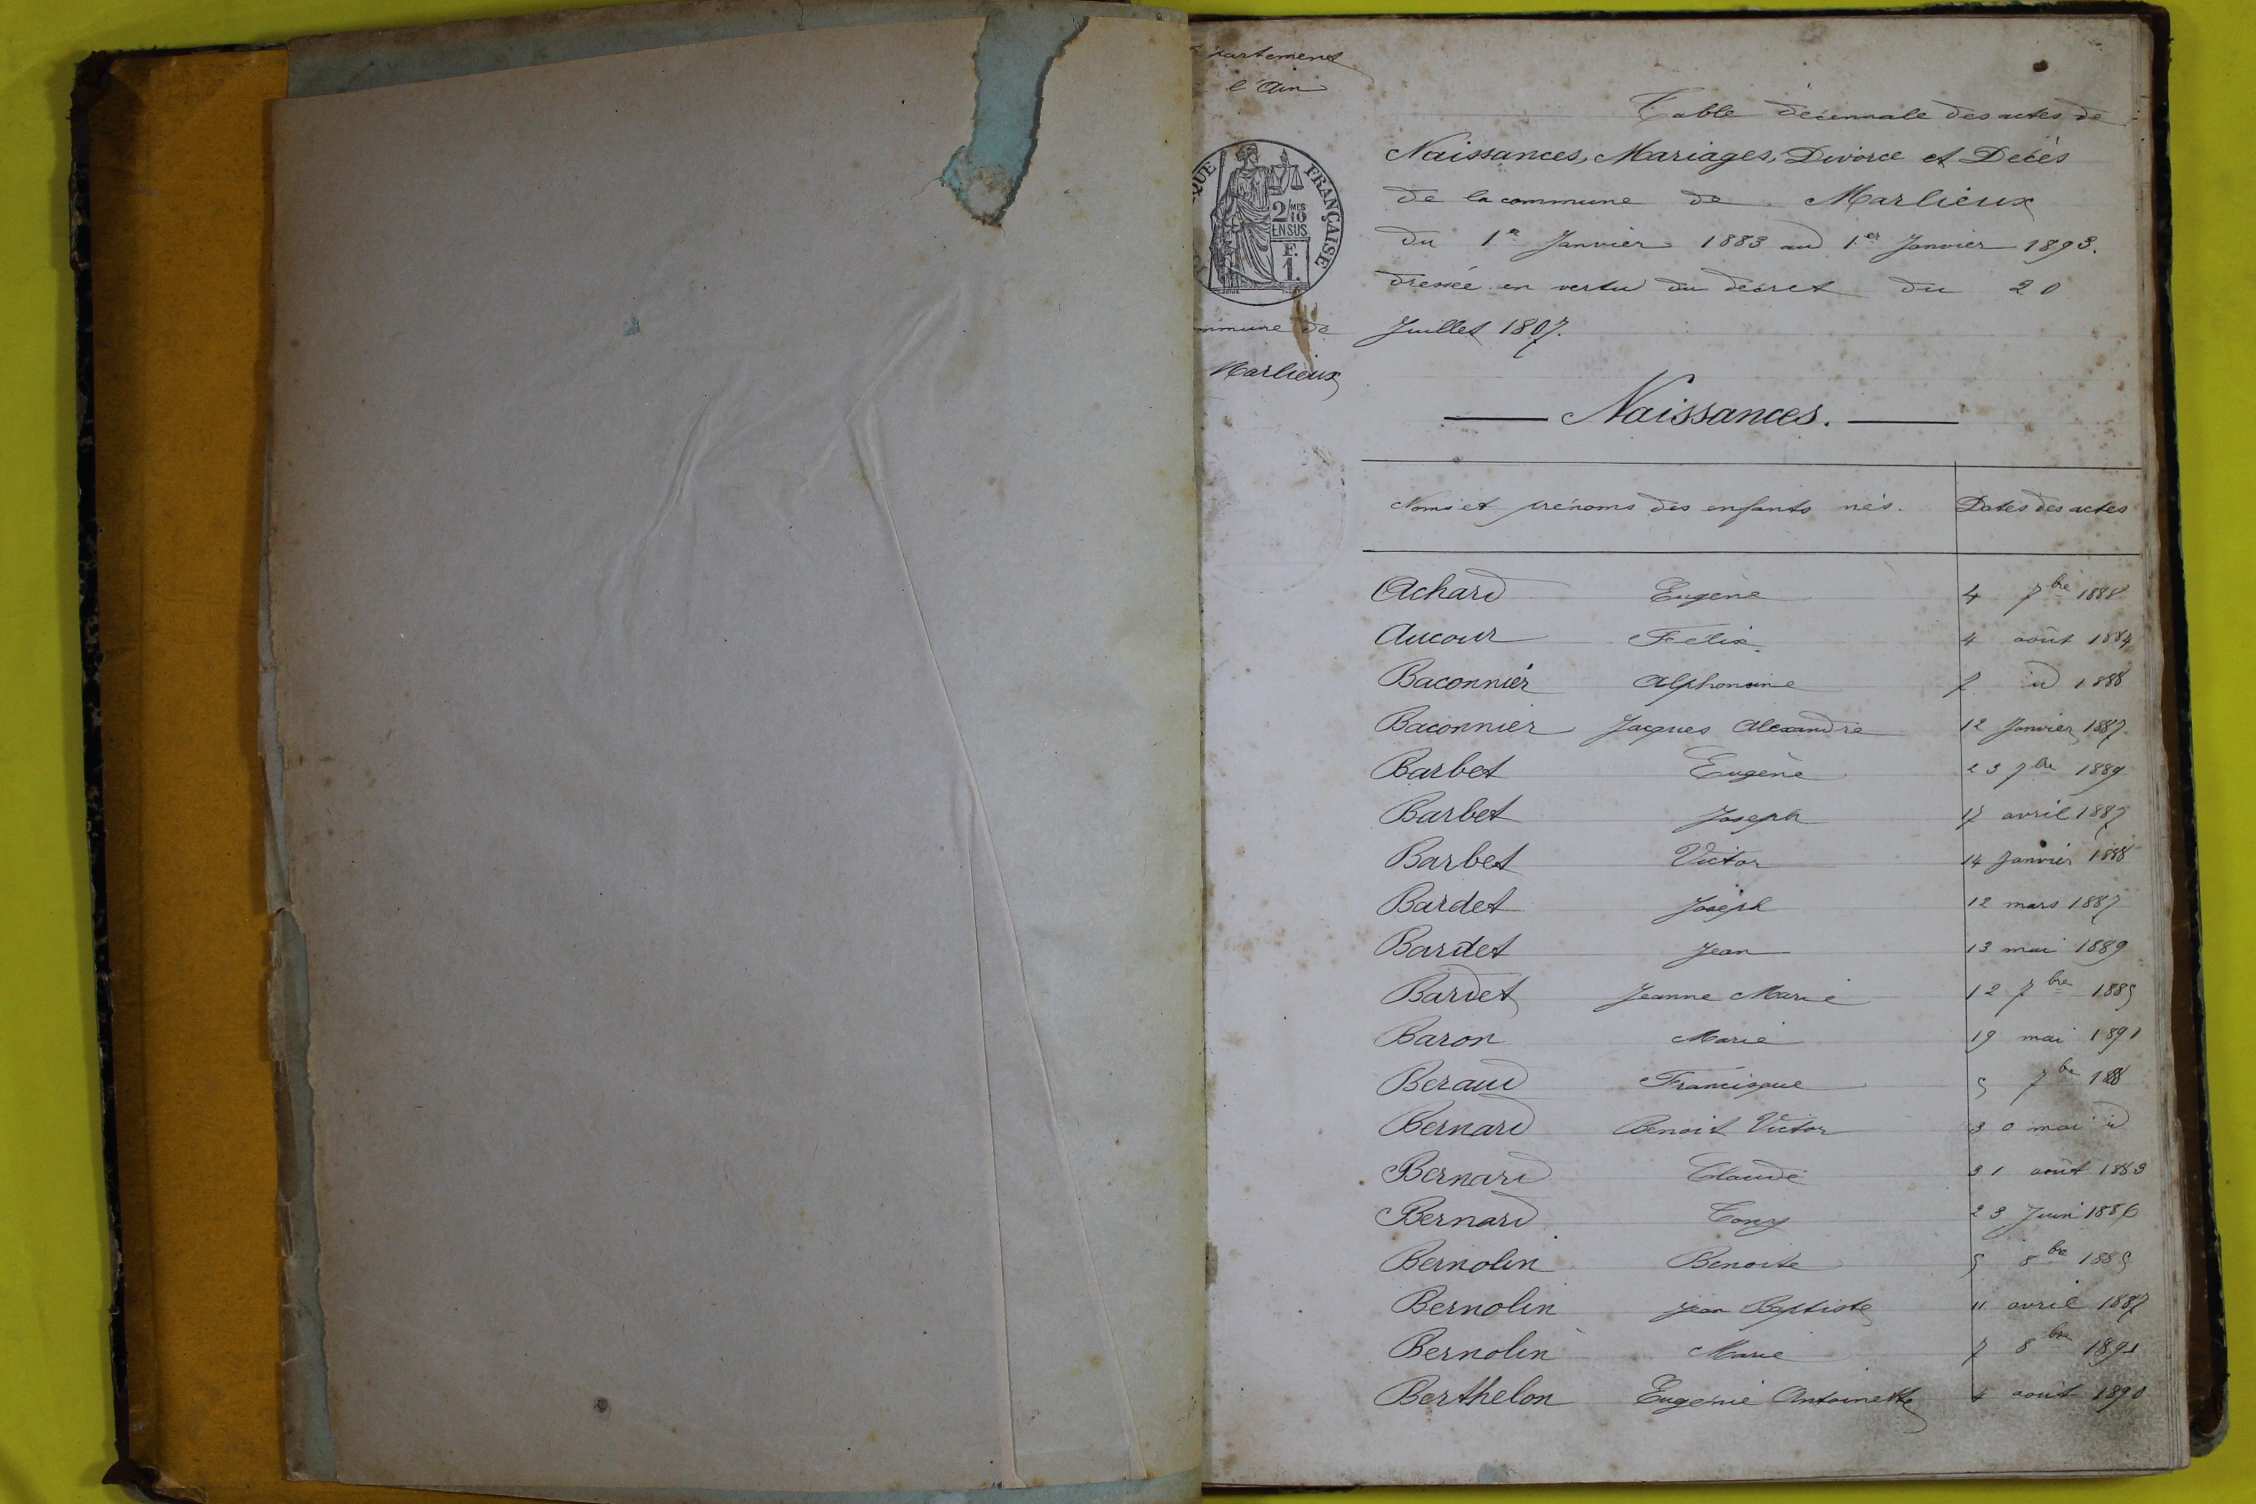 partement
l'Ain
QUE FRANÇAISE
2/10 MES
EN SUS
F.
1.
mmune de
Marlieux
Table décennale des actes de
Naissances, Mariages, Divorce et Décès
de la commune de Marlieux
du 1er Janvier 1883 au 1er Janvier 1893.
dressée en vertu du décret du 20
Juillet 1807.
Naissances.
Noms et prénoms des enfants nés. Dates des actes
Achard Eugène 4 7bre 1888
Aucour Félix 4 août 1884
Baconnier Alphonsine 7 id 1888
Baconnier Jacques Alexandre 12 Janvier 1887
Barbet Eugène 23 7bre 1889
Barbet Joseph 17 avril 1887
Barbet Victor 14 Janvier 1888
Bardet Joseph 12 mars 1887
Bardet Jean 13 mai 1889
Bardet Jeanne Marie 12 7bre 1885
Baron Marie 19 mai 1891
Beraud Francisque 5 7bre 1888
Bernard Benoit Victor 30 mai id
Bernard Claude 31 août 1883
Bernard Tony 23 Juin 1886
Bernolin Benoite 5 8bre 1885
Bernolin Jean Baptiste 11 avril 1887
Bernolin Marie 7 8bre 1891
Berthelon Eugénie Antoinette 4 août 1890